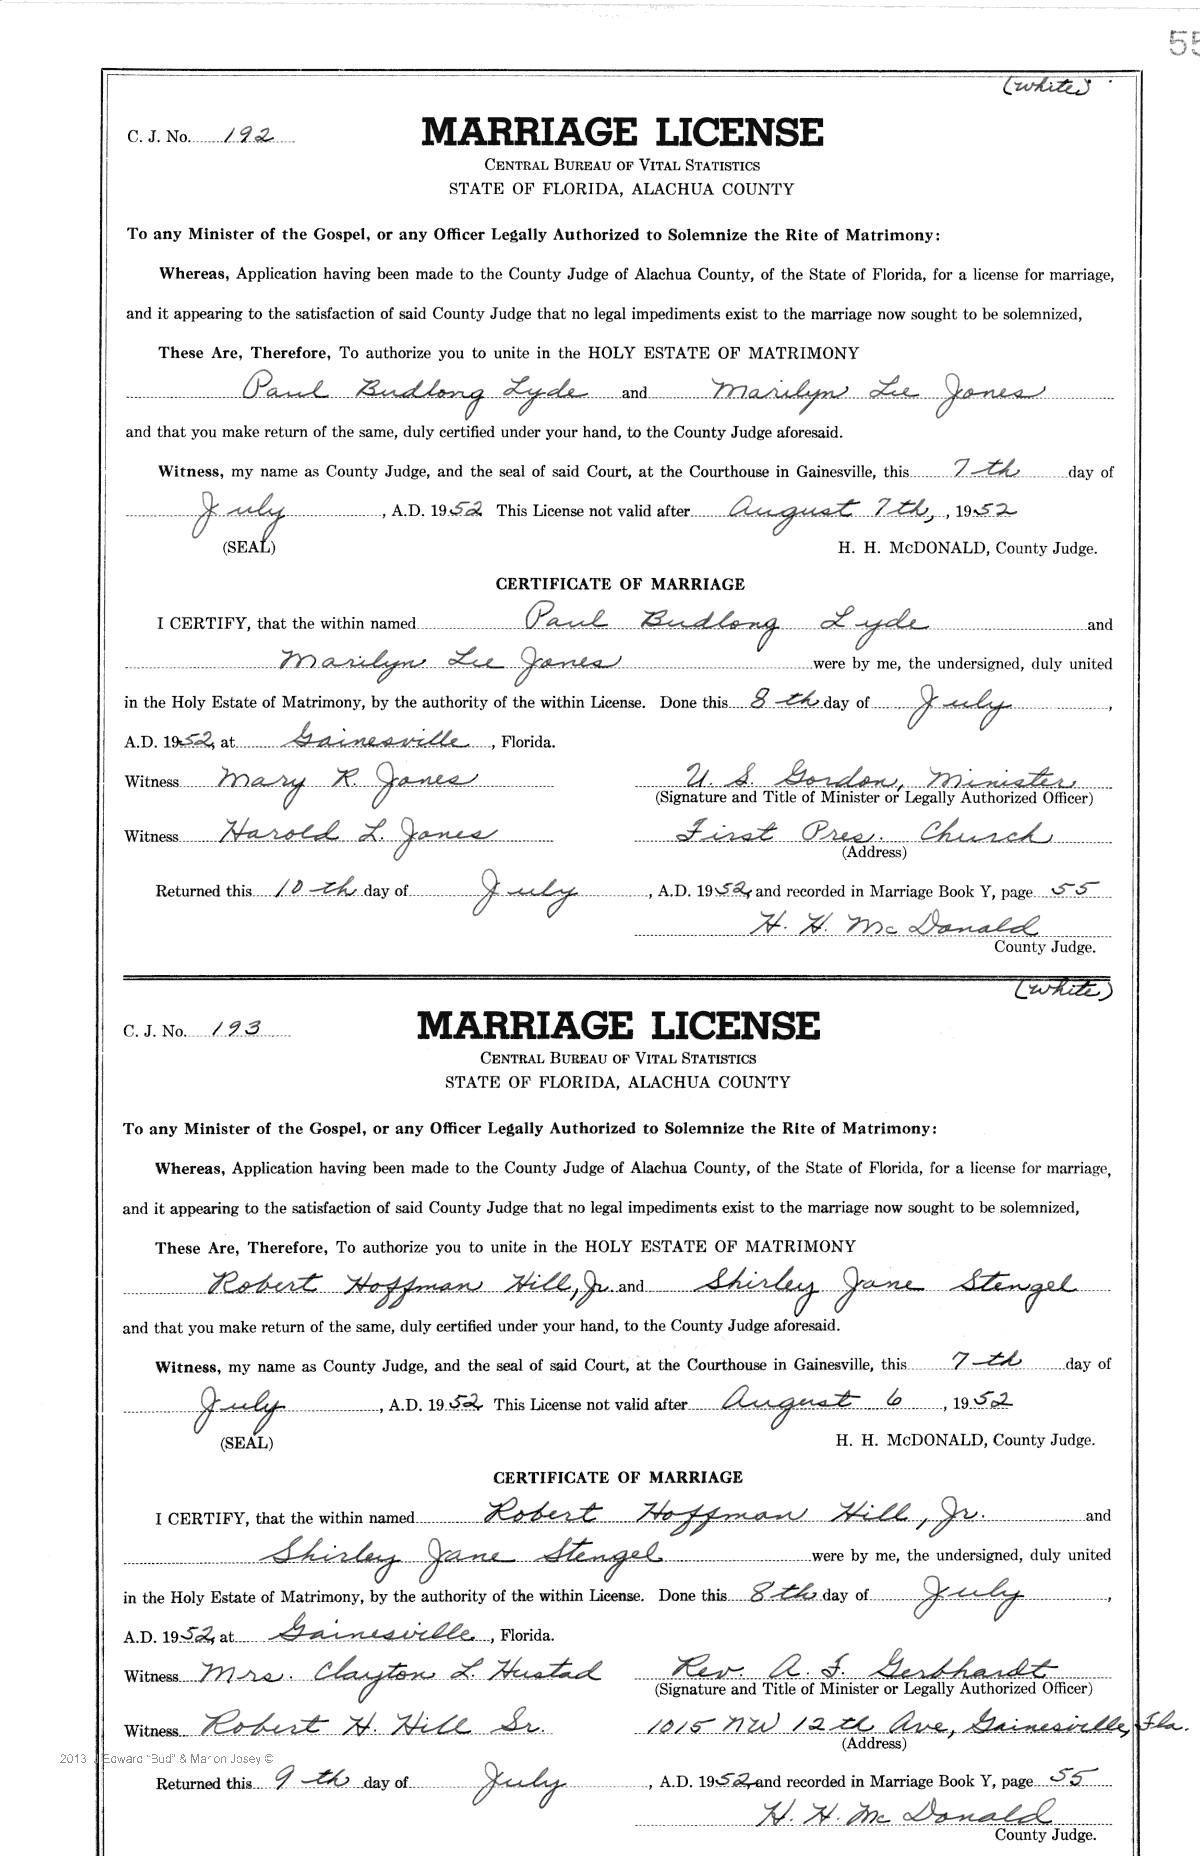 55
(White)
C. J. No. 192
MARRIAGE LICENSE
CENTRAL BUREAU OF VITAL STATISTICS
STATE OF FLORIDA, ALACHUA COUNTY
To any Minister of the Gospel, or any Officer Legally Authorized to Solemnize the Rite of Matrimony:
Whereas, Application having been made to the County Judge of Alachua County, of the State of Florida, for a license for marriage,
and it appearing to the satisfaction of said County Judge that no legal impediments exist to the marriage now sought to be solemnized,
These Are, Therefore, To authorize you to unite in the HOLY ESTATE OF MATRIMONY
Paul Budlong Lyde and Marilyn Lee Jones
and that you make return of the same, duly certified under your hand, to the County Judge aforesaid.
Witness, my name as County Judge, and the seal of said Court, at the Courthouse in Gainesville, this 7th day of
July, A.D. 1952 This License not valid after August 7th, , 1952
(SEAL) H. H. McDONALD, County Judge.
CERTIFICATE OF MARRIAGE
I CERTIFY, that the within named Paul Budlong Lyde and
Marilyn Lee Jones were by me, the undersigned, duly united
in the Holy Estate of Matrimony, by the authority of the within License. Done this 8th day of July,
A.D. 1952, at Gainesville, Florida.
Witness Mary R. Jones U. S. Gordon, Minister
(Signature and Title of Minister or Legally Authorized Officer)
Witness Harold L. Jones First Pres. Church
(Address)
Returned this 10th day of July, A.D. 1952, and recorded in Marriage Book Y, page 55
H. H. McDonald
County Judge.
(White)
C. J. No. 193
MARRIAGE LICENSE
CENTRAL BUREAU OF VITAL STATISTICS
STATE OF FLORIDA, ALACHUA COUNTY
To any Minister of the Gospel, or any Officer Legally Authorized to Solemnize the Rite of Matrimony:
Whereas, Application having been made to the County Judge of Alachua County, of the State of Florida, for a license for marriage,
and it appearing to the satisfaction of said County Judge that no legal impediments exist to the marriage now sought to be solemnized,
These Are, Therefore, To authorize you to unite in the HOLY ESTATE OF MATRIMONY
Robert Hoffman Hill, Jr. and Shirley Jane Stengel
and that you make return of the same, duly certified under your hand, to the County Judge aforesaid.
Witness, my name as County Judge, and the seal of said Court, at the Courthouse in Gainesville, this 7th day of
July, A.D. 1952 This License not valid after August 6, 1952
(SEAL) H. H. McDONALD, County Judge.
CERTIFICATE OF MARRIAGE
I CERTIFY, that the within named Robert Hoffman Hill, Jr. and
Shirley Jane Stengel were by me, the undersigned, duly united
in the Holy Estate of Matrimony, by the authority of the within License. Done this 8th day of July,
A.D. 1952, at Gainesville, Florida.
Witness Mrs. Clayton L. Hustad Rev. A. F. Gerbhardt
(Signature and Title of Minister or Legally Authorized Officer)
Witness Robert H. Hill Sr. 1015 NW 12th Ave, Gainesville, Fla.
(Address)
2013 J Edward "Bud" & Marion Josey ©
Returned this 9th day of July, A.D. 1952, and recorded in Marriage Book Y, page 55
H. H. McDonald
County Judge.